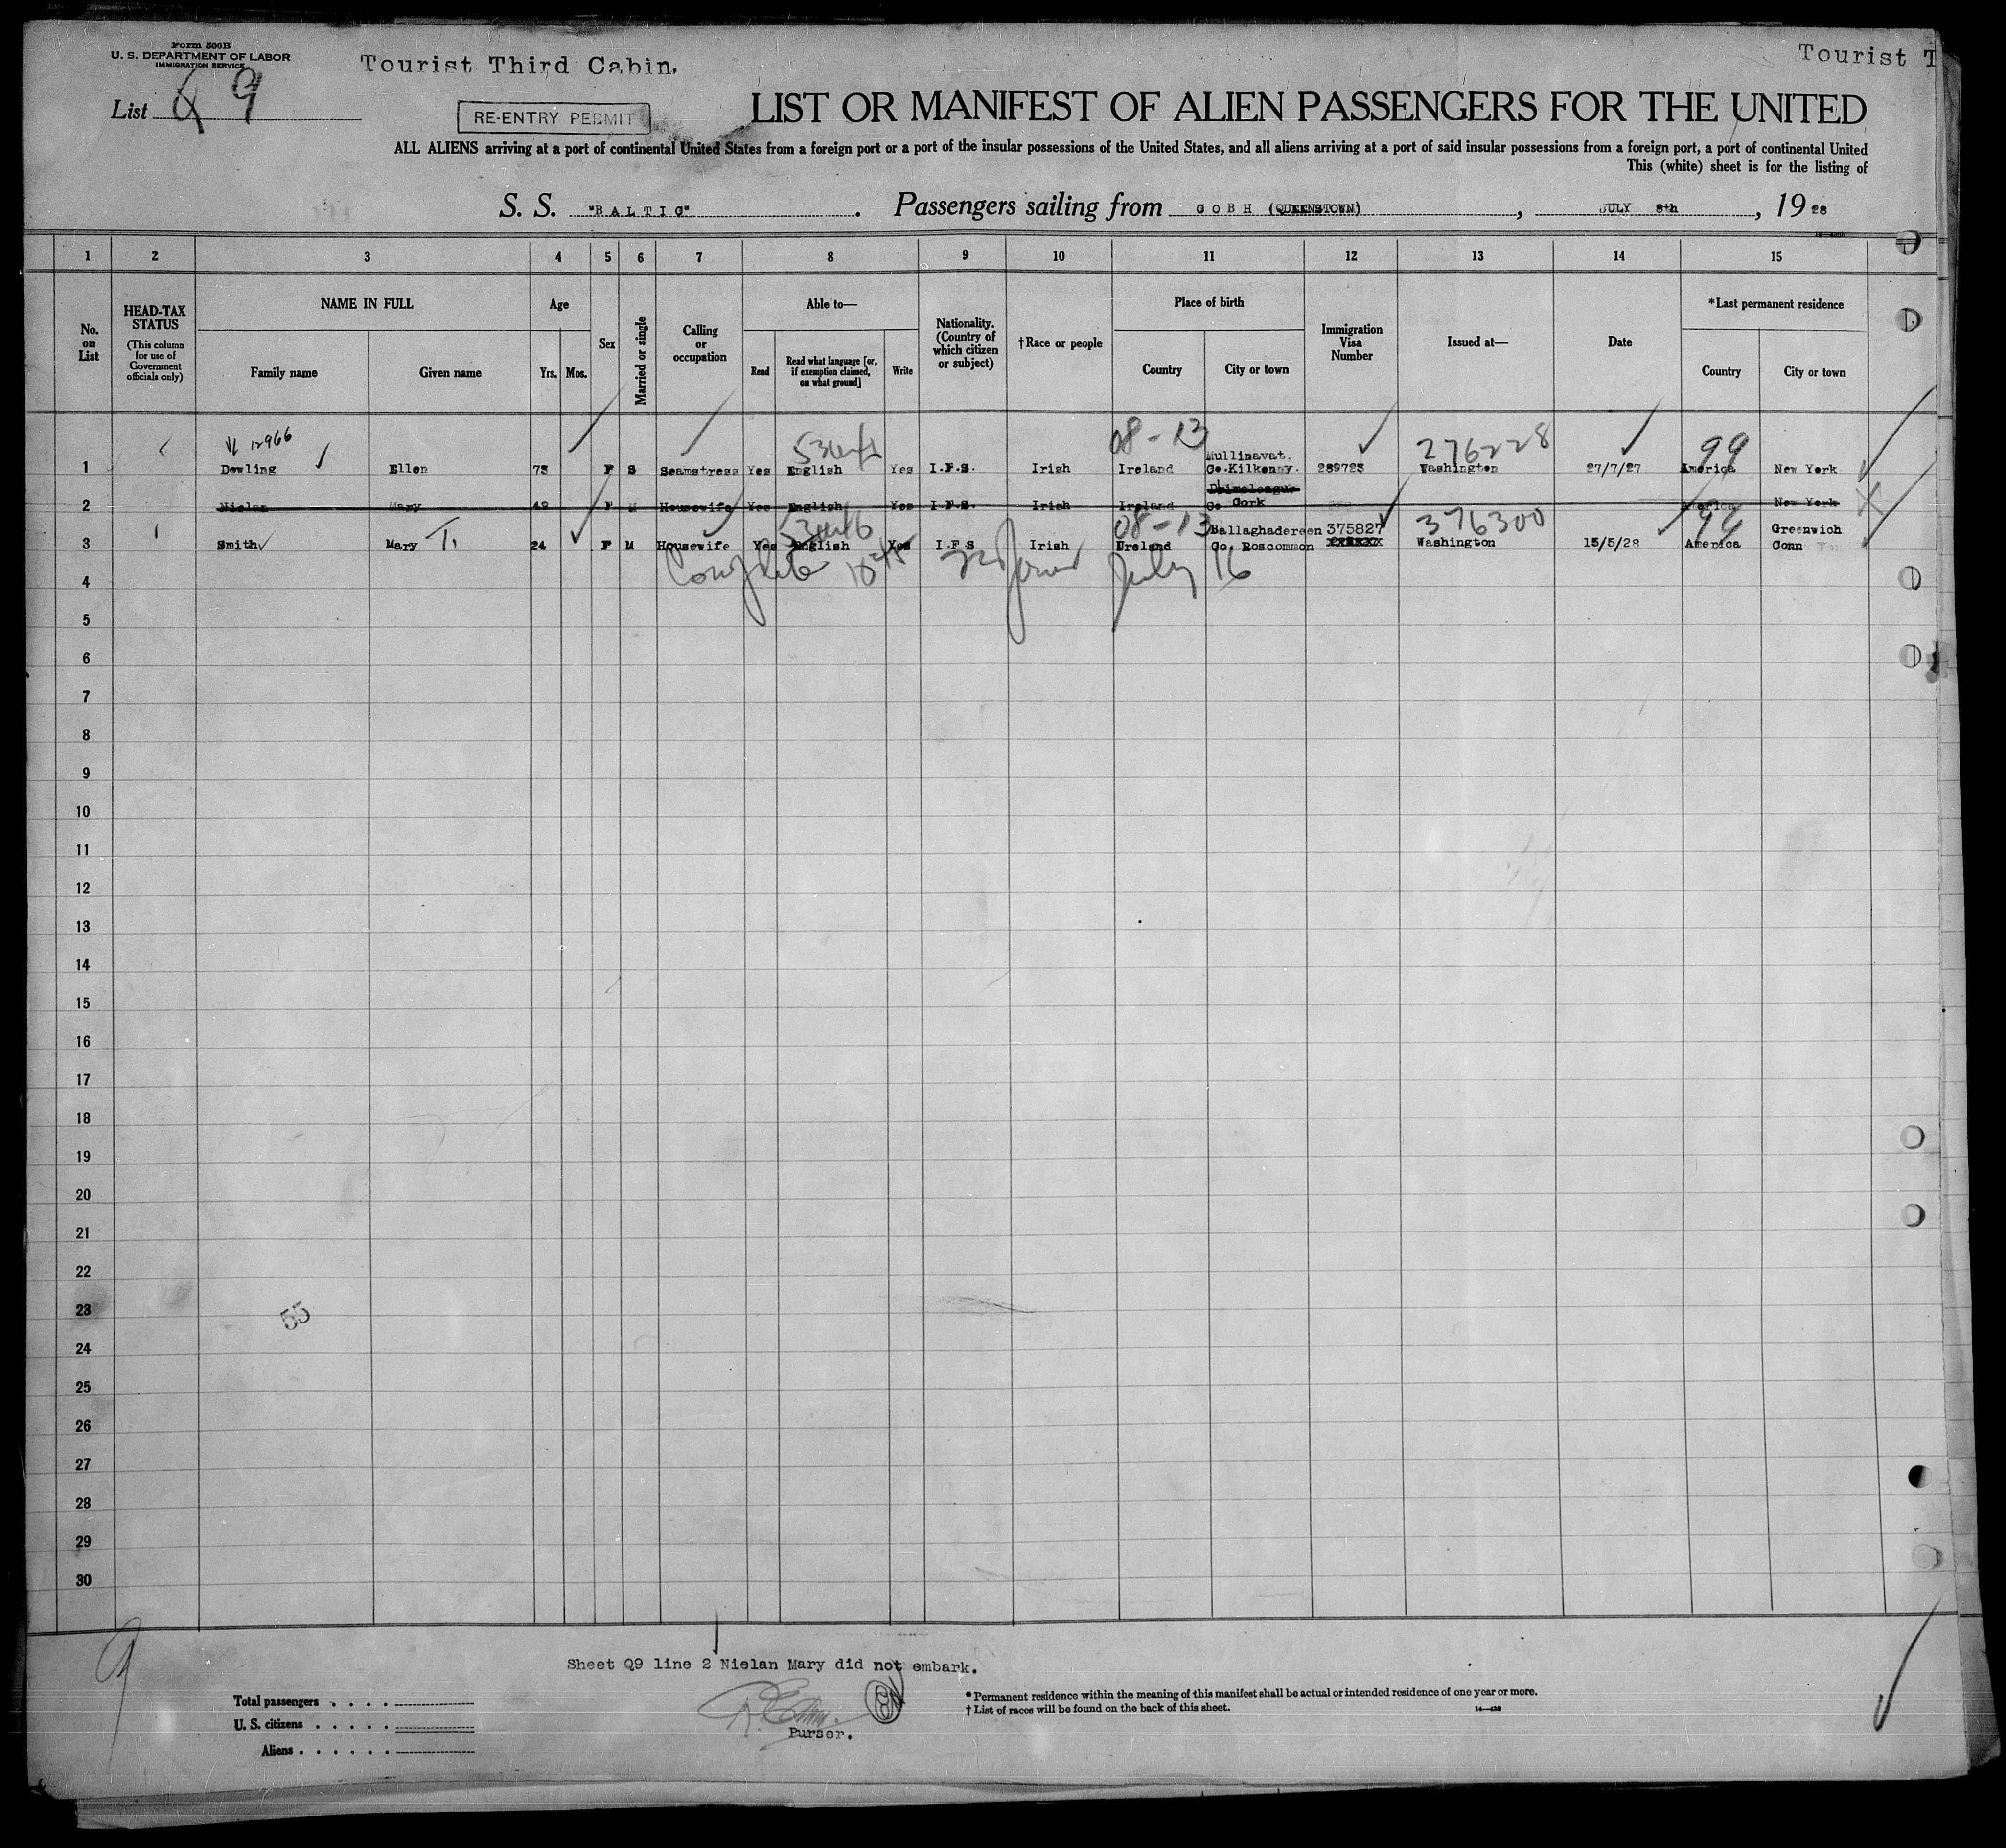 Form 500B
U. S. DEPARTMENT OF LABOR
IMMIGRATION SERVICE
Tourist Third Cabin.
Tourist T
List 9
RE-ENTRY PERMIT
LIST OR MANIFEST OF ALIEN PASSENGERS FOR THE UNITED
ALL ALIENS arriving at a port of continental United States from a foreign port or a port of the insular possessions of the United States, and all aliens arriving at a port of said insular possessions from a foreign port, a port of continental United
This (white) sheet is for the listing of
S. S. "BALTIC". Passengers sailing from COBH (QUEENSTOWN), JULY 8th, 1928
1 2 3 4 5 6 7 8 9 10 11 12 13 14 15
No. on List
HEAD-TAX STATUS
(This column for use of Government officials only)
NAME IN FULL
Family name Given name
Age
Yrs. Mos.
Sex
Married or single
Calling or occupation
Able to—
Read Read what language [or, if exemption claimed, on what ground] Write
Nationality. (Country of which citizen or subject)
†Race or people
Place of birth
Country City or town
Immigration Visa Number
Issued at—
Date
*Last permanent residence
Country City or town
12966 08-13 276228 99
Mullinavat.
1 Dowling Ellen 73 F S Seamstress Yes English Yes I.F.S. Irish Ireland Co.Kilkenny. 289723 Washington 27/7/27 America New York
Drimoleague
2 Nielan Mary 49 F M Housewife Yes English Yes I.F.S. Irish Ireland Co Cork America New York
08-13 Ballaghadereen 375827 376300 Greenwich
3 Smith Mary T. 24 F M Housewife Yes English Yes I.F.S Irish Ureland Co. Roscommon Washington 15/5/28 America Conn
4 Complete July 16
5
6
7
8
9
10
11
12
13
14
15
16
17
18
19
20
21
22
23 55
24
25
26
27
28
29
30
9
Sheet Q9 line 2 Nielan Mary did not embark.
Purser.
Total passengers . . . .
U. S. citizens . . . . .
Aliens . . . . . .
* Permanent residence within the meaning of this manifest shall be actual or intended residence of one year or more.
† List of races will be found on the back of this sheet.
14—430